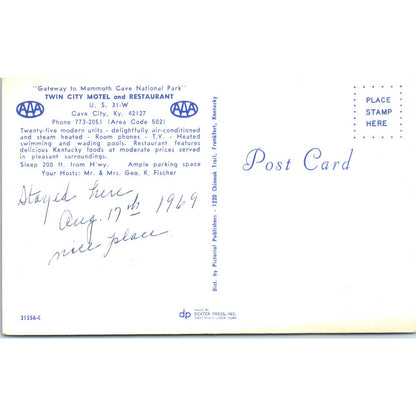 "Gateway to Mammoth Cave National Park"
TWIN CITY MOTEL and RESTAURANT
AAA
AAA
U. S. 31-W
Cave City, Ky. 42127
Phone 773-2051 (Area Code 502)
Twenty-five modern units - delightfully air-conditioned
and steam heated - Room phones - T.V. - Heated
swimming and wading pools. Restaurant features
delicious Kentucky foods at moderate prices served
in pleasant surroundings.
Sleep 200 ft. from H'wy. Ample parking space
Your Hosts: Mr. & Mrs. Geo. K. Fischer
Stayed here
Aug. 17th 1969
nice place.
31556-C
Dist. by Pictorial Publishers - 1220 Chinook Trail, Frankfort, Kentucky
dp
MADE BY
DEXTER PRESS, INC.
WEST NYACK, NEW YORK
Post Card
PLACE
STAMP
HERE